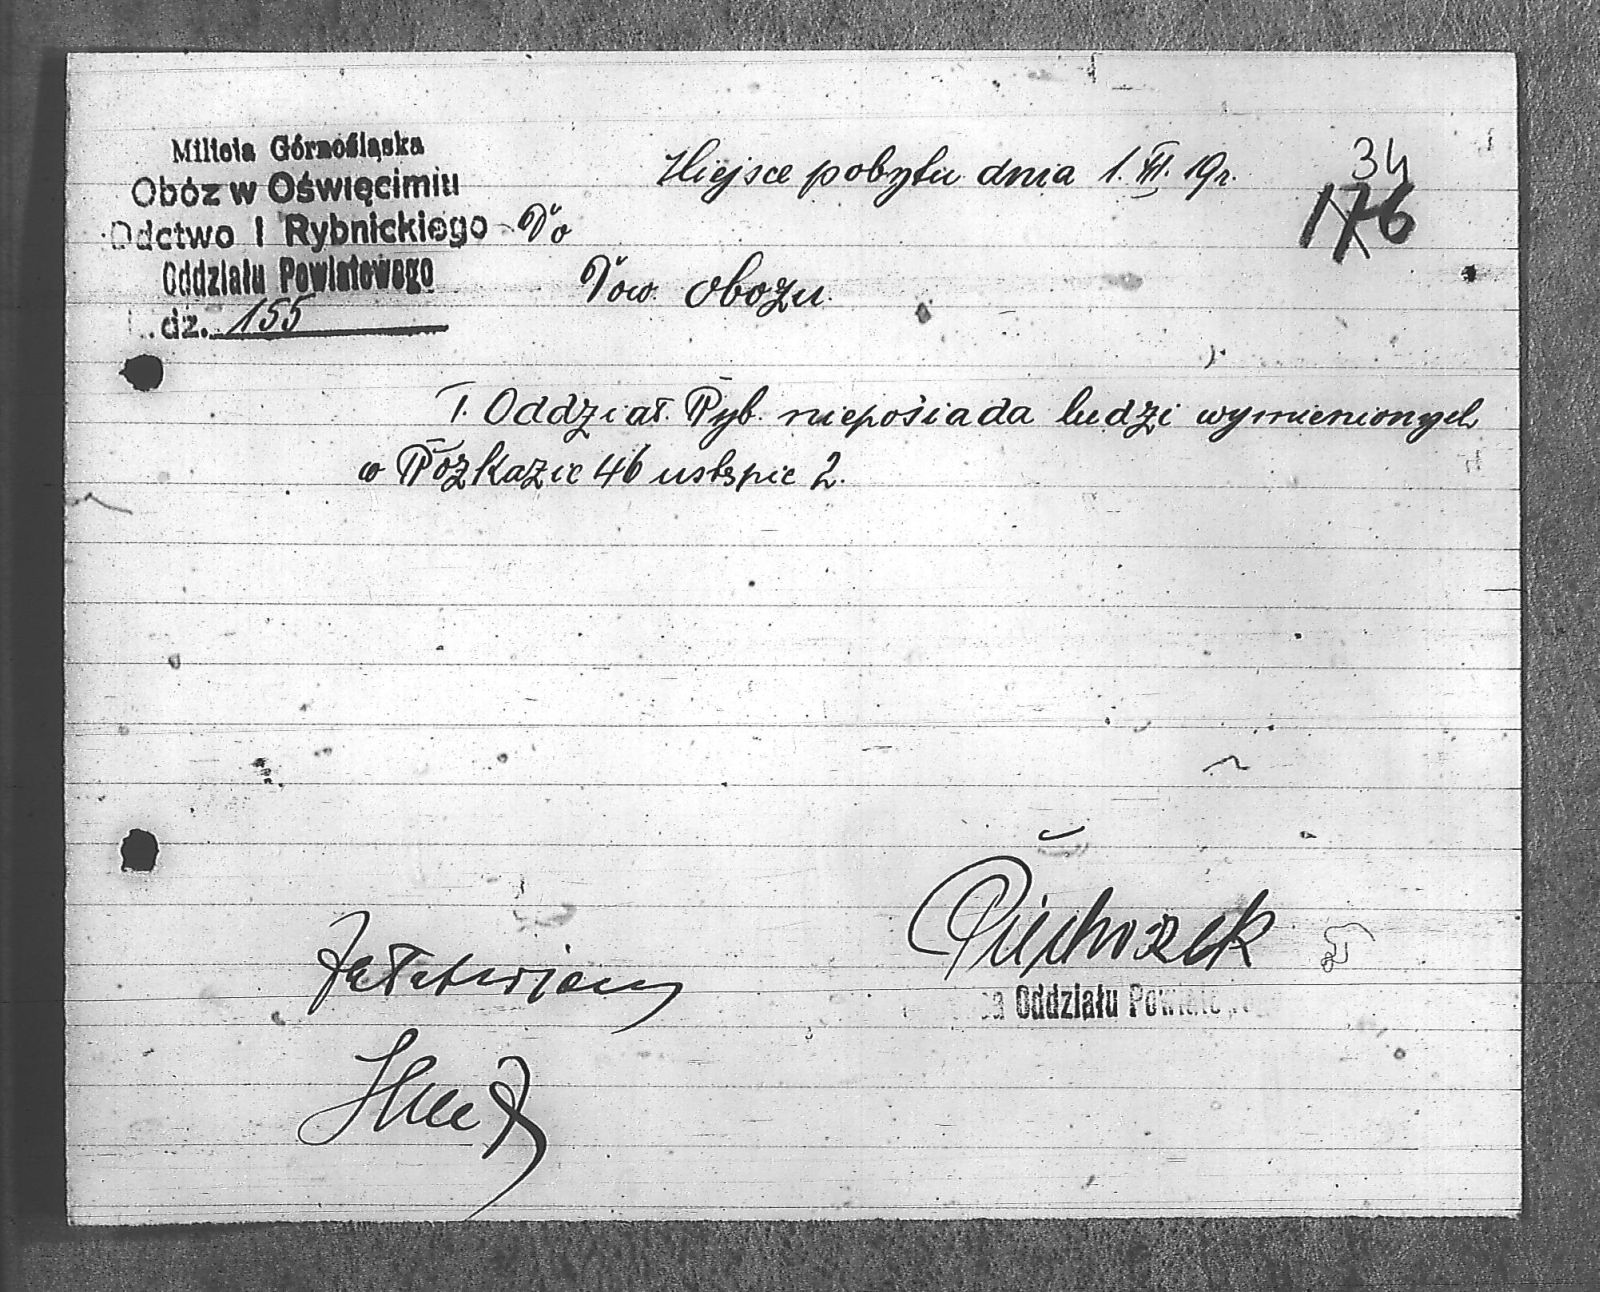 Milicia Górnośląska
Obóz w Oświęcimiu
Odctwo I Rybnickiego
Oddziału Powiatowego
L. dz. 155
Miejsce pobytu dnia 1. XII. 19r.
34
176
Do
Dow. obozu.
I. Oddział. Ryb. nieposiada ludzi wymienionych
w Rozkazie 46 ustępie 2.
Piechoczek
Oddziału Powiatowego